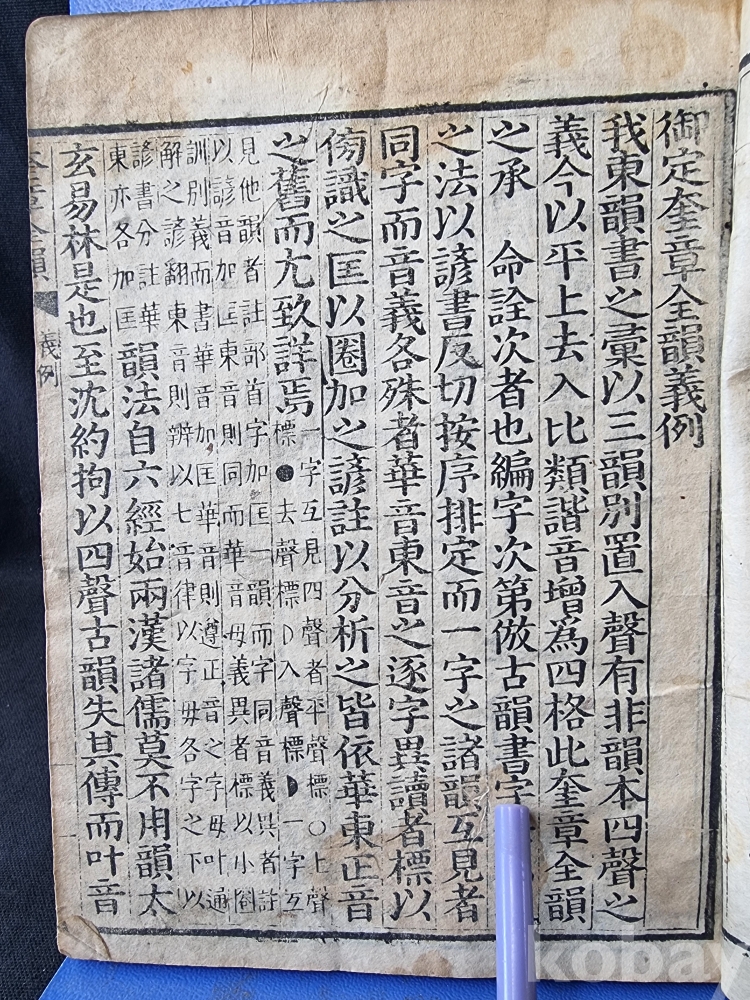 御定奎章全韻義例
我東韻書之彙以三韻別置入聲有非韻本四聲之
義今以平上去入比類諧音增為四格此奎章全韻
之承　命詮次者也編字次第倣古韻書字
之法以諺書反切按序排定而一字之諸韻互見者
同字而音義各殊者華音東音之逐字異讀者標以
傍識之匡以圈加之諺註以分析之皆依華東正音
之舊而尢致詳焉
一字互見四聲者平聲標○上聲
標●去聲標☽入聲標◗一字互
見他韻者註部首字加匡一韻而字同音義異者註
以諺音加匡東音則同而華音母義異者標以小圈
訓別義而書華音加匡華音則遵正音之字母叶通
解之諺翻東音則辨以七音律以字母各字之下以
諺書分註華
東亦各加匡
韻法自六經始兩漢諸儒莫不用韻太
玄易林是也至沈約拘以四聲古韻失其傳而叶音
奎章全韻 義例
kobay